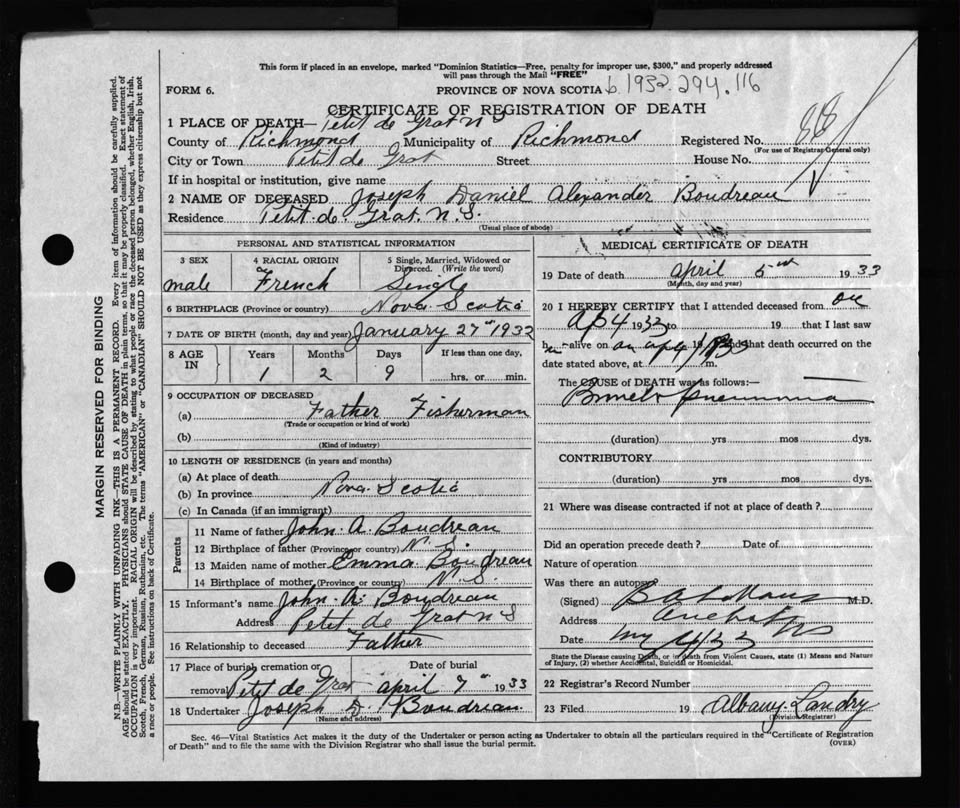 This form if placed in an envelope, marked "Dominion Statistics—Free, penalty for improper use, $300," and properly addressed
will pass through the Mail "FREE"
FORM 6.
PROVINCE OF NOVA SCOTIA b. 1932. 294. 116
CERTIFICATE OF REGISTRATION OF DEATH
1 PLACE OF DEATH— Petit de Grat N S
County of Richmond Municipality of Richmond Registered No.
(For use of Registrar General only)
City or Town Petit de Grat Street House No.
If in hospital or institution, give name
2 NAME OF DECEASED Joseph Daniel Alexander Boudreau
Residence Petit de Grat. N.S.
(Usual place of abode)
PERSONAL AND STATISTICAL INFORMATION
3 SEX 4 RACIAL ORIGIN 5 Single, Married, Widowed or Divorced. (Write the word)
male French Single
6 BIRTHPLACE (Province or country) Nova Scotia
7 DATE OF BIRTH (month, day and year) January 27th 1932
8 AGE IN Years Months Days If less than one day,
1 2 9 hrs. or min.
9 OCCUPATION OF DECEASED
(a) Father Fisherman
(Trade or occupation or kind of work)
(b)
(Kind of industry)
10 LENGTH OF RESIDENCE (in years and months)
(a) At place of death
(b) In province Nova Scotia
(c) In Canada (if an immigrant)
Parents
11 Name of father John A. Boudreau
12 Birthplace of father (Province or country) N. S.
13 Maiden name of mother Emma Boudreau
14 Birthplace of mother (Province or country) N. S.
15 Informant's name John A. Boudreau
Address Petit de Grat N S
16 Relationship to deceased Father
17 Place of burial, cremation or Date of burial
removal Petit de Grat april 7th 1933
18 Undertaker Joseph D. Boudreau.
(Name and address)
MEDICAL CERTIFICATE OF DEATH
19 Date of death april 5 1933
(Month, day and year)
20 I HEREBY CERTIFY that I attended deceased from
Ap 4 193 to 19 that I last saw
h alive on ap 4 19 and that death occurred on the
date stated above, at m.
The CAUSE of DEATH was as follows:—
pneumonia
(duration) yrs mos dys.
CONTRIBUTORY
(duration) yrs mos dys.
21 Where was disease contracted if not at place of death?
Did an operation precede death? Date of
Nature of operation
Was there an autopsy
(Signed) M.D.
Address
Date
State the Disease causing Death, or in death from Violent Causes, state (1) Means and Nature
of Injury, (2) whether Accidental, Suicidal or Homicidal.
22 Registrar's Record Number
23 Filed 19 Albany Landry
(Division Registrar)
Sec. 46—Vital Statistics Act makes it the duty of the Undertaker or person acting as Undertaker to obtain all the particulars required in the "Certificate of Registration
of Death" and to file the same with the Division Registrar who shall issue the burial permit.
(OVER)
MARGIN RESERVED FOR BINDING
N.B.—WRITE PLAINLY WITH UNFADING INK—THIS IS A PERMANENT RECORD. Every item of information should be carefully supplied.
AGE should be stated EXACTLY. PHYSICIANS should STATE CAUSE OF DEATH in plain terms, so that it may be properly classified. Exact statement of
OCCUPATION is very important. RACIAL ORIGIN will be described by stating to what people or race the deceased person belonged, whether English, Irish,
Scotch, French, German, Russian, Ruthenian, etc. The terms "AMERICAN" or "CANADIAN" SHOULD NOT BE USED as they express citizenship but not
a race or people. See instructions on back of Certificate.